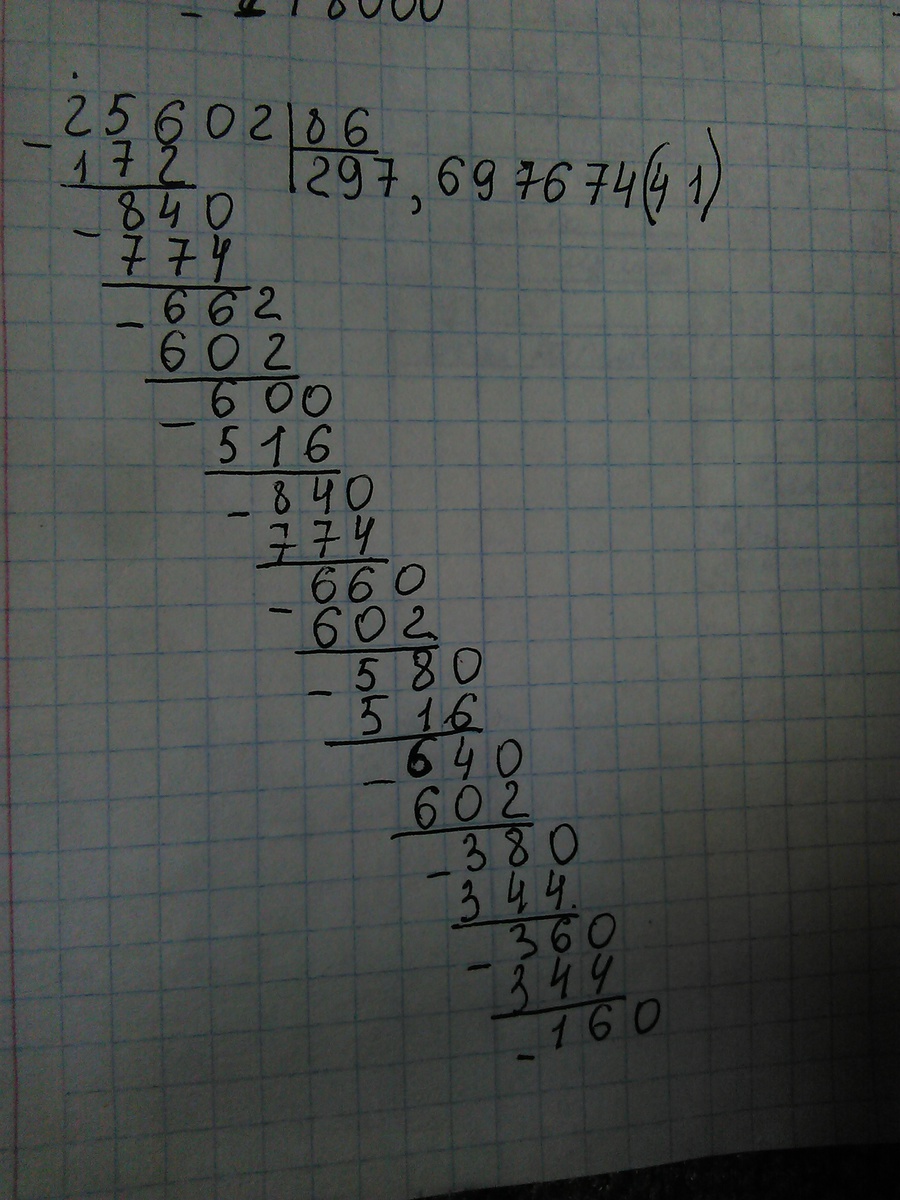 18000
25602 86
- 172 297,697674(41)
840
- 774
662
- 602
600
- 516
840
- 774
660
- 602
580
- 516
640
- 602
380
- 344
360
- 344
160
-